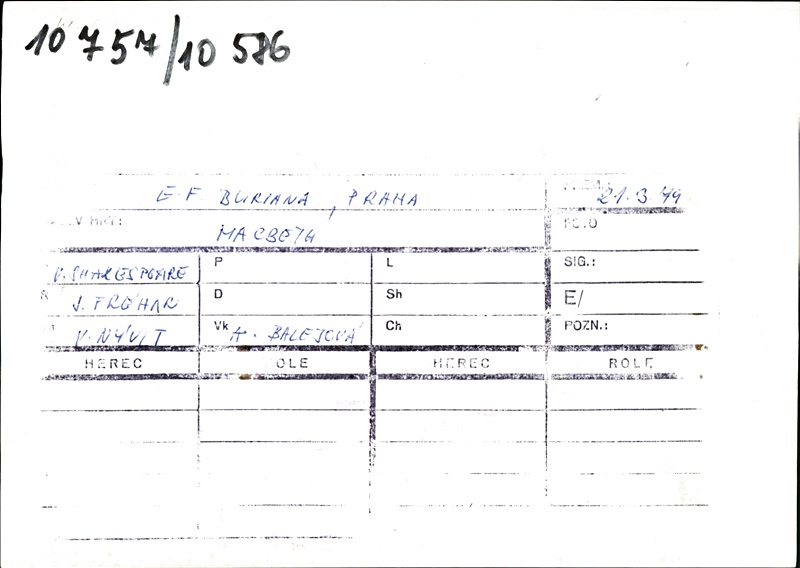 10 757/10 586
E F BURIANA, PRAHA
21.3.79
V HRY:
MACBETH
FOTO
V. SHAKESPEARE
P
L
SIG.:
R J. FRÉHAR
D
Sh
E/
V. NÝVLT
Vk A. BALEJOVÁ
Ch
POZN.:
HEREC
OLE
HEREC
ROLE